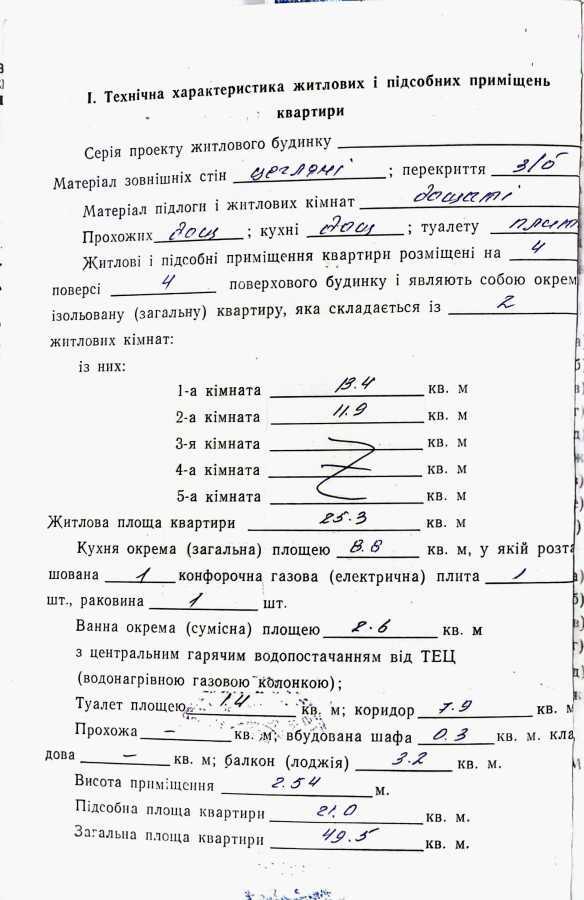 І. Технічна характеристика житлових і підсобних приміщень
квартири
Серія проекту житлового будинку
Матеріал зовнішніх стін цегляні ; перекриття з/б
Матеріал підлоги і житлових кімнат дощаті
Прохожих дощ ; кухні дощ ; туалету плит
Житлові і підсобні приміщення квартири розміщені на 4
поверсі 4 поверхового будинку і являють собою окрем
ізольовану (загальну) квартиру, яка складається із 2
житлових кімнат:
із них:
1-а кімната 13.4 кв. м
2-а кімната 11.9 кв. м
3-я кімната кв. м
4-а кімната кв. м
5-а кімната кв. м
Житлова площа квартири 25.3 кв. м
Кухня окрема (загальна) площею 8.8 кв. м, у якій розта
шована 1 конфорочна газова (електрична) плита 1
шт., раковина 1 шт.
Ванна окрема (сумісна) площею 2.6 кв. м
з центральним гарячим водопостачанням від ТЕЦ
(водонагрівною газовою колонкою);
Туалет площею 1.4 кв. м; коридор 7.9 кв. м
Прохожа — кв. м; вбудована шафа 0.3 кв. м. кла
дова — кв. м; балкон (лоджія) 3.2 кв. м.
Висота приміщення 2.54 м.
Підсобна площа квартири 21.0 кв. м.
Загальна площа квартири 49.5 кв. м.